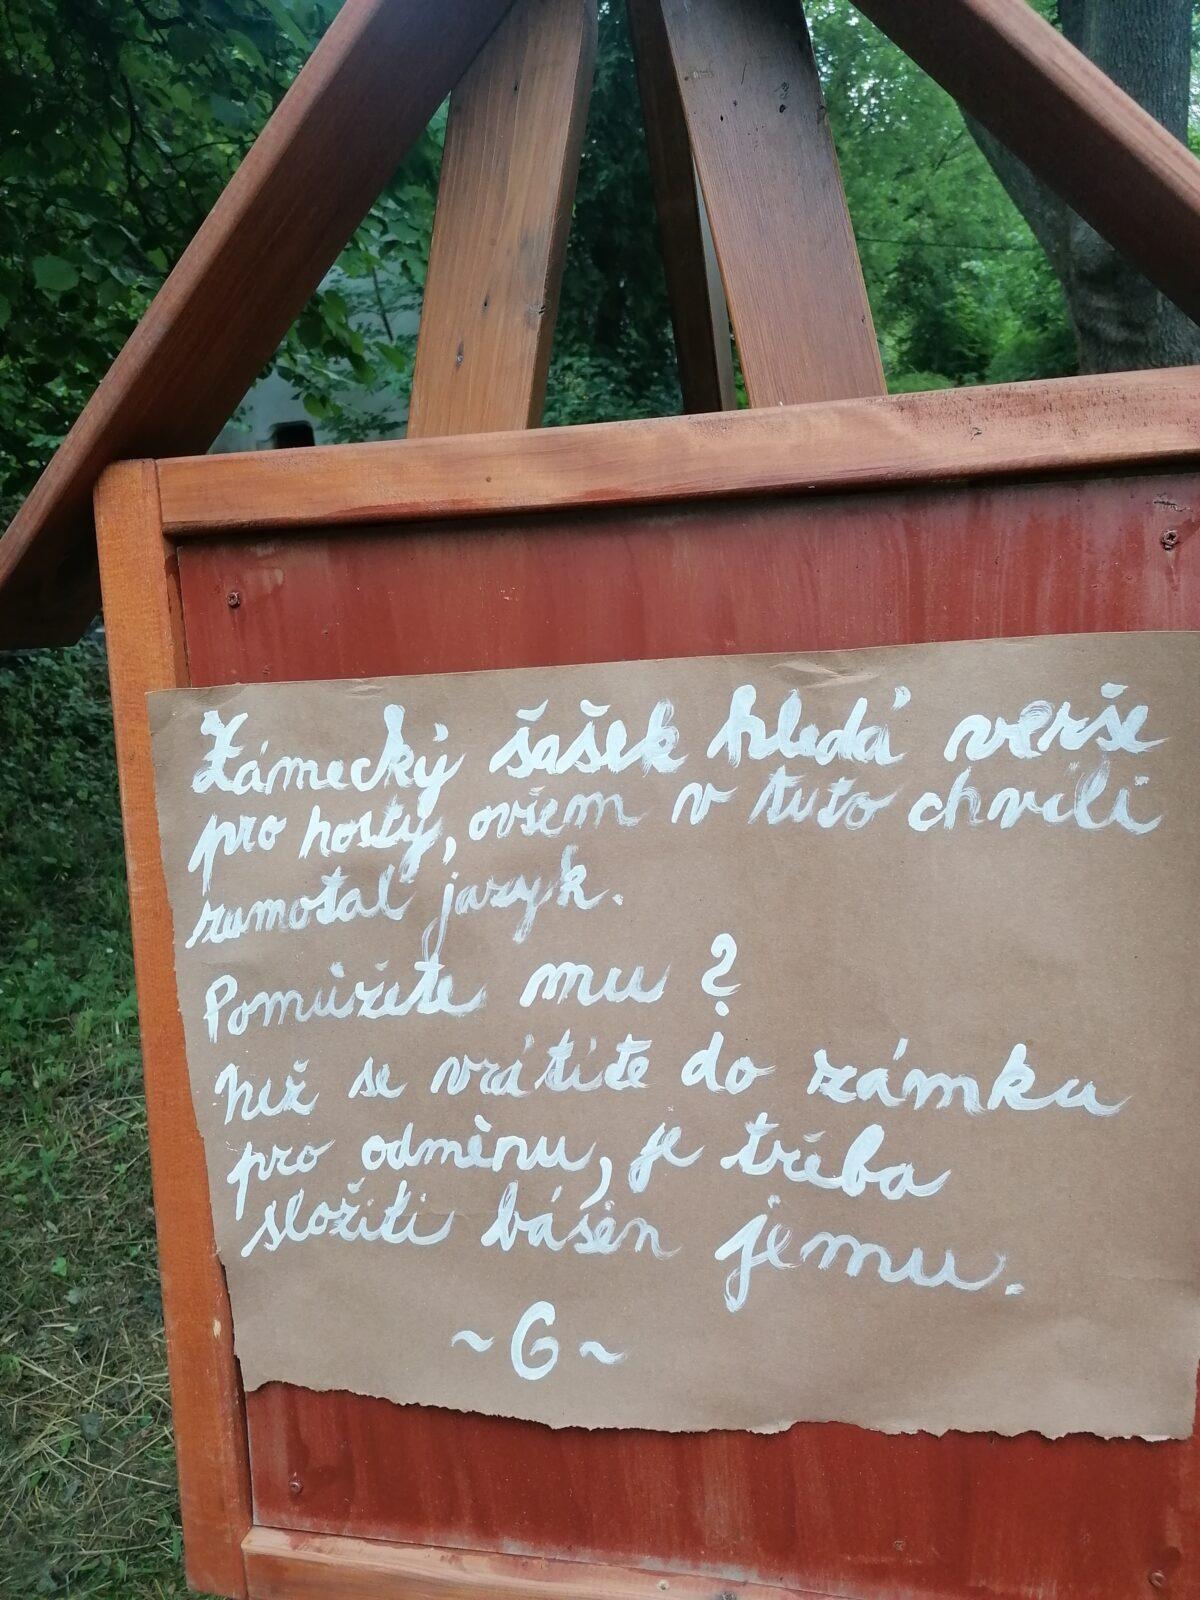 Zámecký šašek hledá verše
pro hosty, ovšem v tuto chvíli
zamotal jazyk.
Pomůžete mu ?
Než se vrátíte do zámku
pro odměnu, je třeba
složiti báseň jemu.
~ G ~